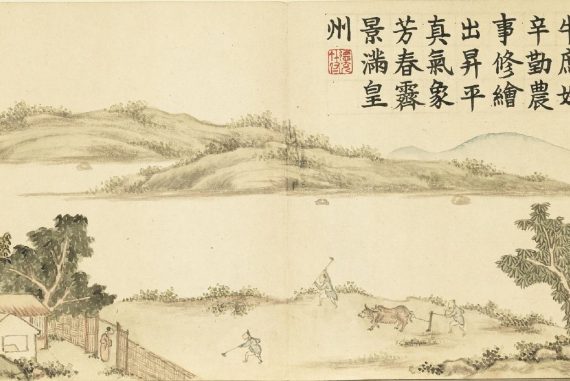 辛勤農
事修繪
出昇平
真氣象
芳春霽
景滿皇
州